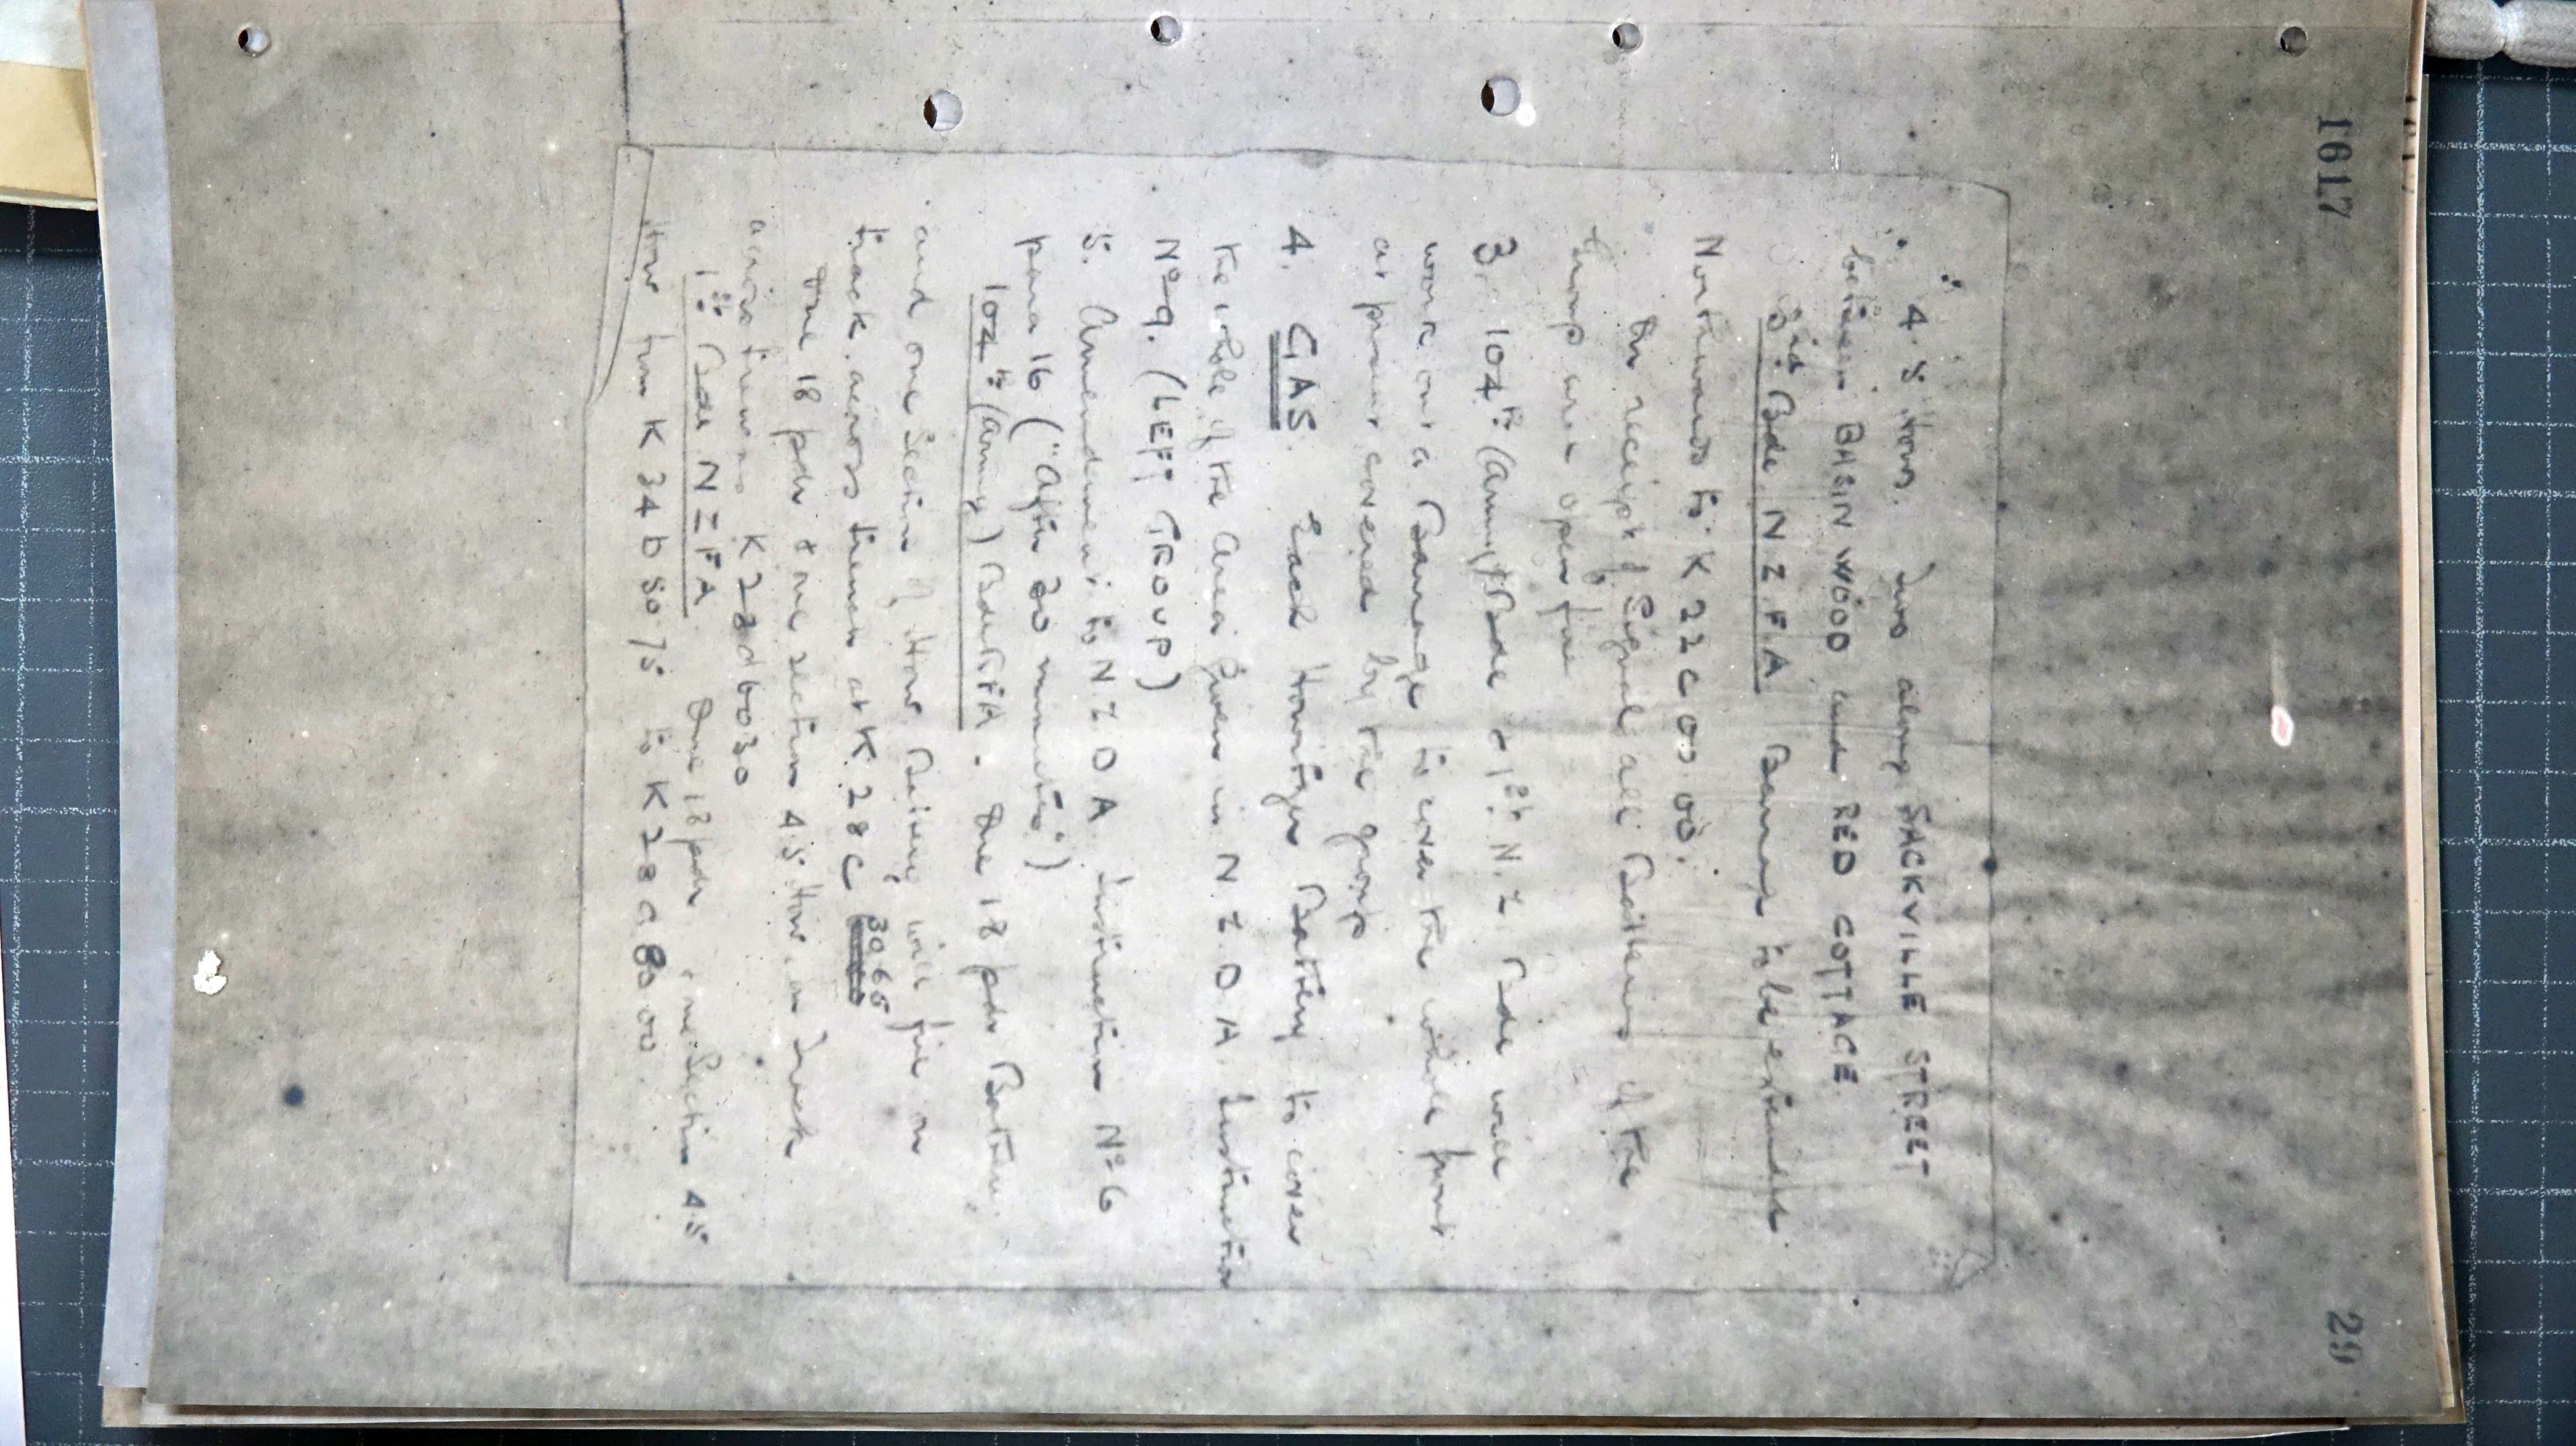 1617
29
4.5 Hows. Two along SACKVILLE STREET
between BASIN WOOD and RED COTTAGE.
3rd Bde N Z F A Barrage to be extended
Northwards to K 22 c 00.00.
On receipt of Signal all Batteries of the
Group will open fire
3. 104th (Army) Bde & 1st N.Z. Bde will
work out a Barrage to cover the whole front
at present covered by the group
4. GAS. Each Howitzer Battery to cover
the whole of the area given in N.Z.D.A. Instruction
No 9. (LEFT GROUP)
5. Amendment to N.Z.D.A. Instruction No 6
para 16 ("After 30 minutes")
104th (Army) Bde RFA. One 18 pdr Battery
and one Section of How. Battery will fire on
track across trench at K 28 c 30.65
One 18 pdr & one section 4.5 How. on track
across trench K 28 d 60 30
1st Bde N Z F A. One 18 pdr & one Section 4.5
How from K 34 b 50 75 to K 28 d 80 00.